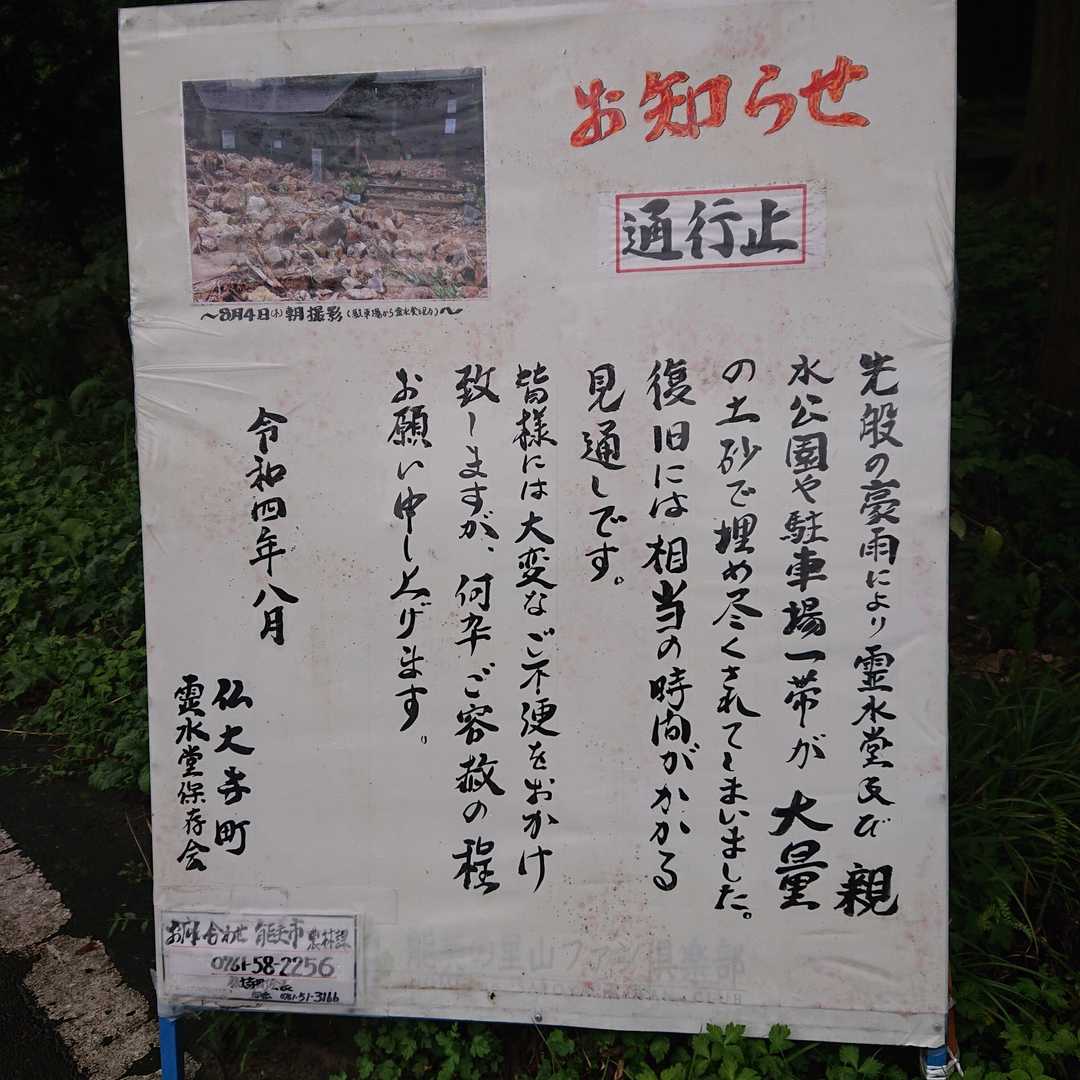 お知らせ
通行止
〜8月4日(木)朝撮影(駐車場から霊水堂視る)〜
先般の豪雨により霊水堂及び親
水公園や駐車場一帯が大量
の土砂で埋め尽くされてしまいました。
復旧には相当の時間がかかる
見通しです。
皆様には大変なご不便をおかけ
致しますが、何卒ご容赦の程
お願い申し上げます。
令和四年八月
仏大寺町
霊水堂保存会
お問い合わせ 能美市 農林課
0761-58-2256
0761-51-3166
能美の里山ファン倶楽部